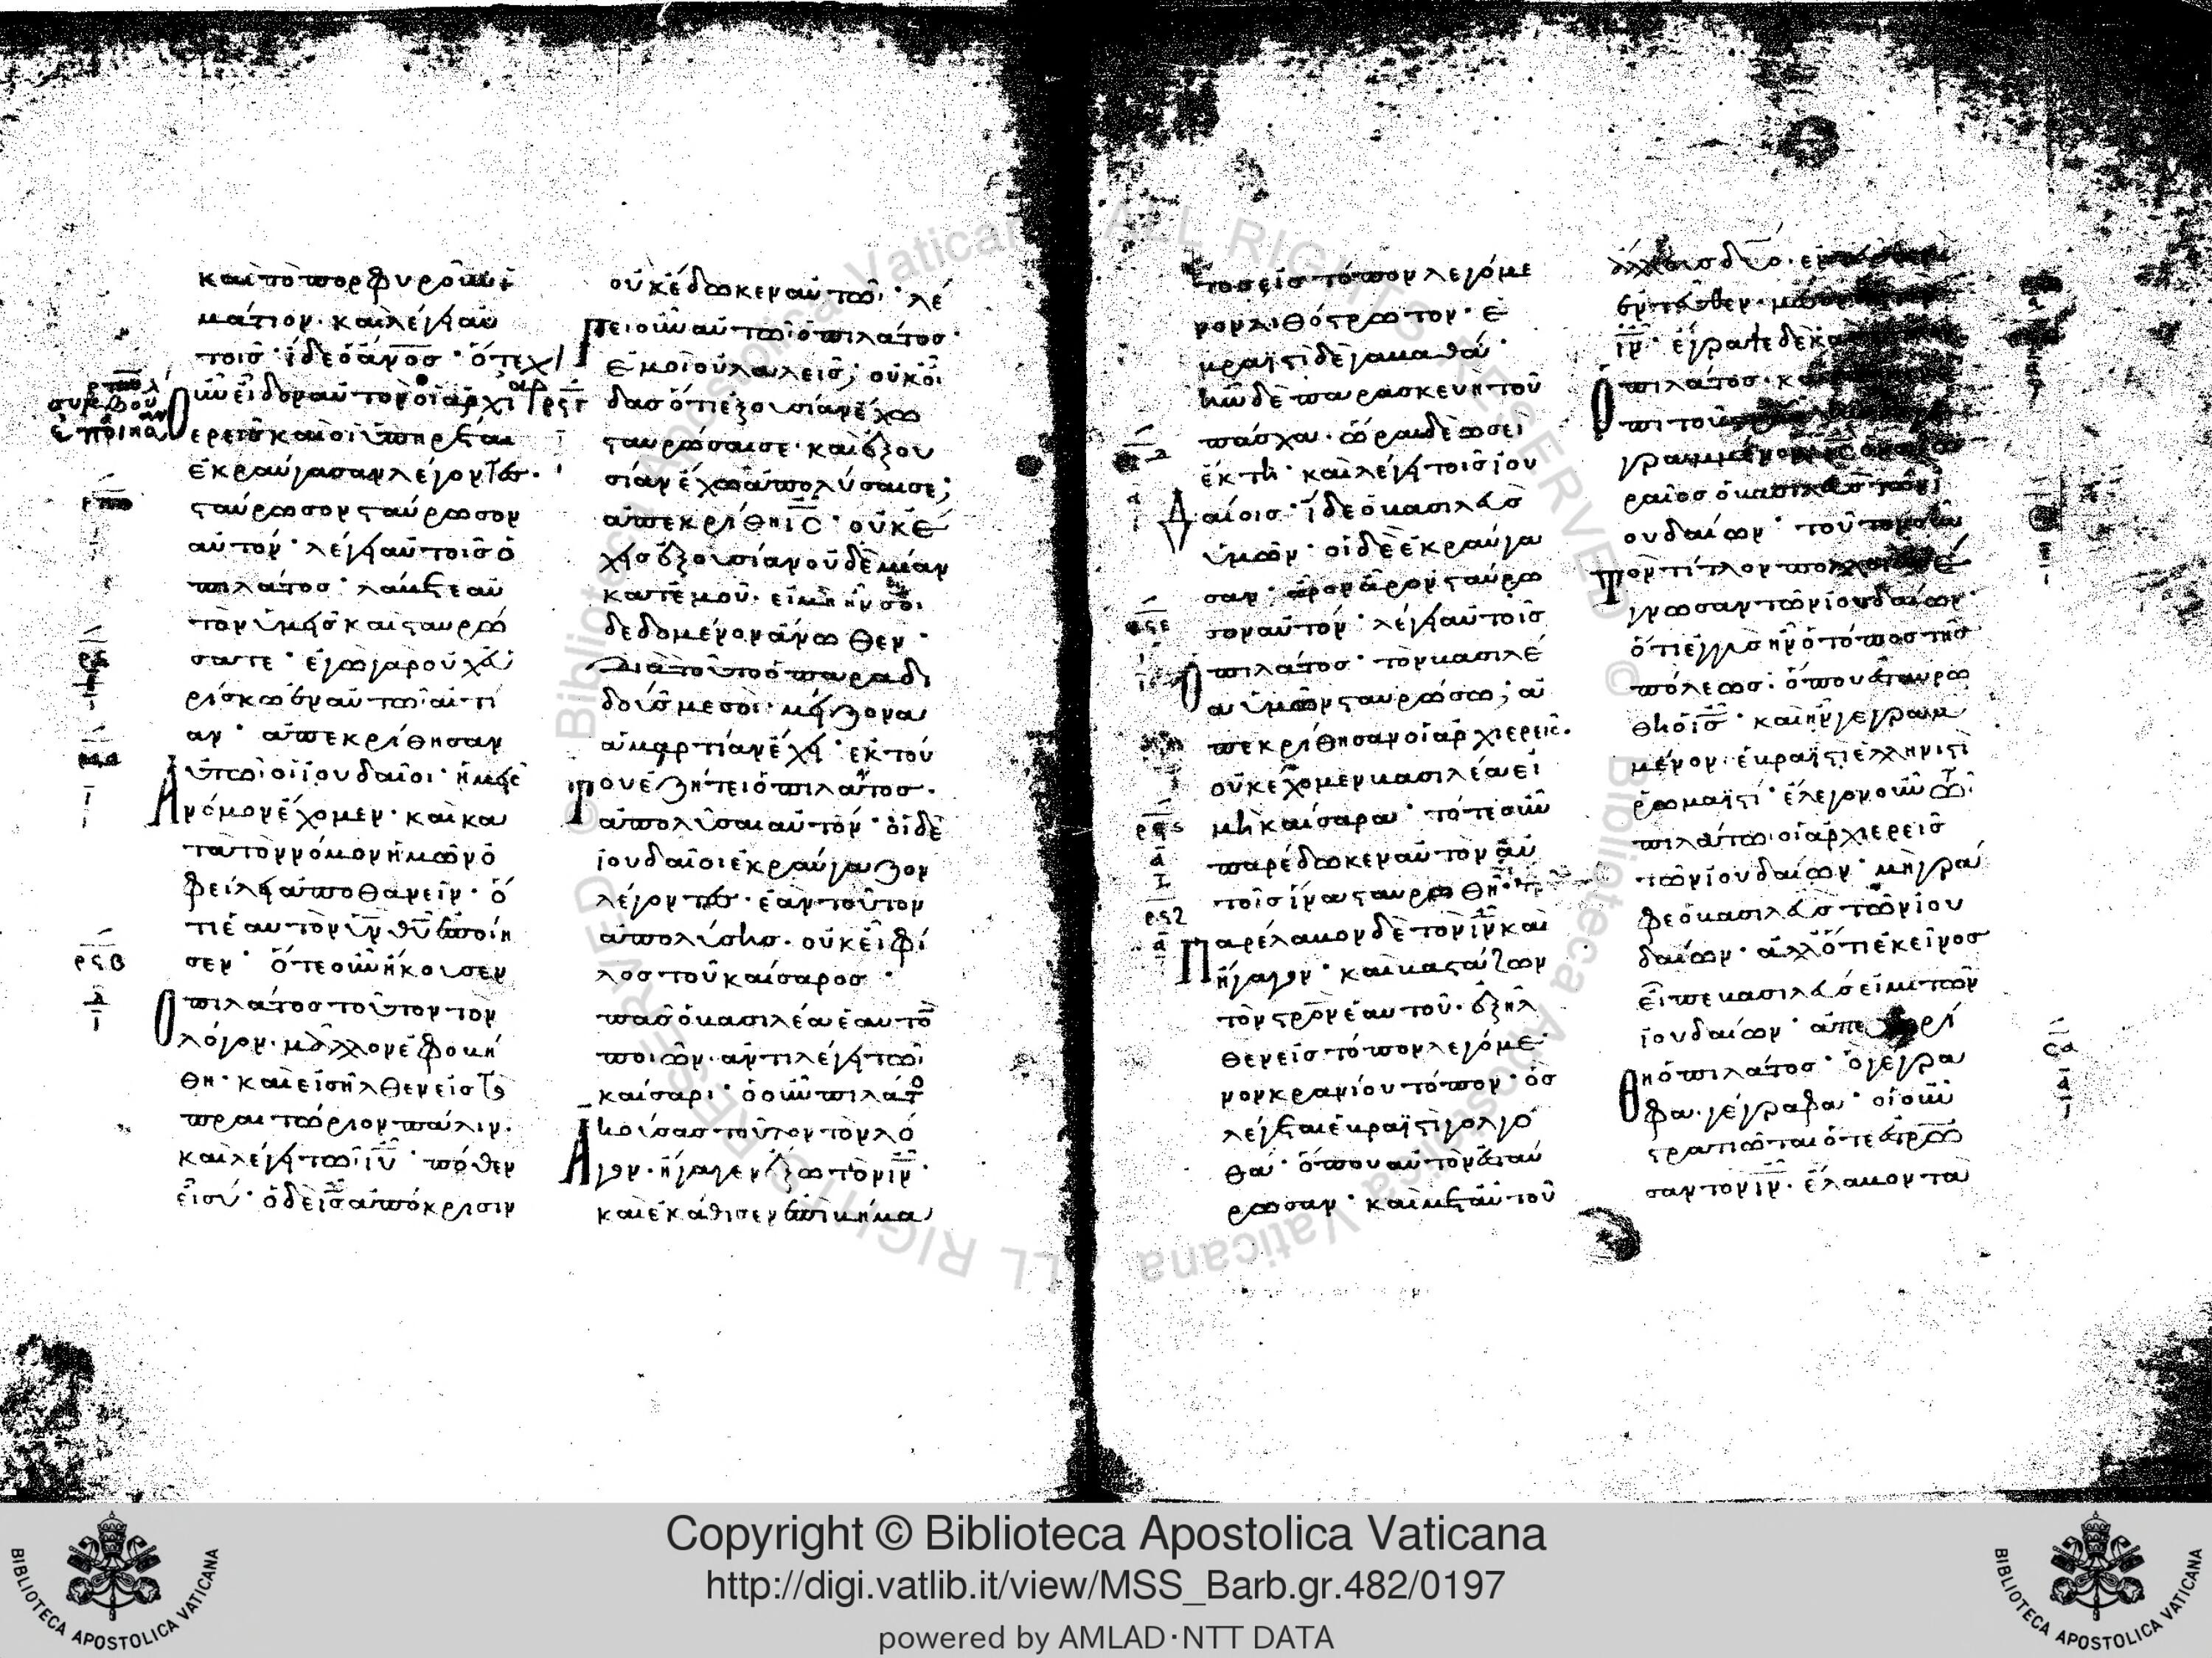 καὶ τὸ πορφυροῦν ἱ
μάτιον· καὶ λέγει αὐ
τοῖς· ἴδε ὁ ἄν̅ο̅ς̅· ὅτε
οὖν εἶδον αὐτὸν οἱ ἀρχι
ερεῖς καὶ οἱ ὑπηρέται
ἐκραύγασαν λέγοντες·
σταύρωσον σταύρωσον
αὐτόν· λέγει αὐτοῖς ὁ
πιλάτος· λάβετε αὐ
τὸν ὑμεῖς καὶ σταυρώ
σατε· ἐγὼ γὰρ οὐχ εὑ
ρίσκω ἐν αὐτῶ αἰτί
αν· ἀπεκρίθησαν
αὐτῶ οἱ ἰουδαῖοι· ἡμεῖς
νόμον ἔχομεν· καὶ κα
τὰ τὸν νόμον ἡμῶν ὀ
φείλει ἀποθανεῖν· ὅ
τι ἑαυτὸν υ̅ν̅ θ̅υ̅ ἐποίη
σεν· ὅτε οὖν ἤκουσεν
ὁ πιλάτος τοῦτον τὸν
λόγον· μᾶλλον ἐφοβή
θη· καὶ εἰσῆλθεν εἰς τὸ
πραιτώριον πάλιν·
καὶ λέγει τῶ ι̅υ̅· πόθεν
εἶ σύ· ὁ δὲ ι̅ς̅ ἀπόκρισιν
οὐκ ἔδωκεν αὐτῶ· λέ
γει οὖν αὐτῶ ὁ πιλάτος·
ἐμοὶ οὐ λαλεῖς; οὐκ οἶ
δας ὅτι ἐξουσίαν ἔχω
σταυρῶσαι σε· καὶ ἐξου
σίαν ἔχω ἀπολῦσαι σε;
ἀπεκρίθη ι̅ς̅· οὐκ εἶ
χες ἐξουσίαν οὐδεμίαν
κατ' ἐμοῦ· εἰ μὴ ἦν σοι
δεδομένον ἄνωθεν·
διὰ τοῦτο ὁ παραδι
δούς με σοι· μείζονα
ἁμαρτίαν ἔχει· ἐκ τού
του ἐζήτει ὁ πιλάτος·
ἀπολῦσαι αὐτόν· οἱ δὲ
ἰουδαῖοι ἐκραύγαζον
λέγοντες· ἐὰν τοῦτον
ἀπολύσης· οὐκ εἶ φί
λος τοῦ καίσαρος·
πᾶς ὁ βασιλέα ἑαυτὸ̅
ποιῶν· ἀντιλέγει τῶ
καίσαρι· ὁ οὖν πιλάτο
ἀκούσας τοῦτον τὸν λό
γον· ἤγαγεν ἔξω τὸν ι̅ν̅·
καὶ ἐκάθισεν ἐπὶ βήμα
τος εἰς τόπον λεγόμε
νον λιθόστρωτον· ἑ
βραϊστὶ δὲ γαβαθά·
ἦν δὲ παρασκευὴ τοῦ
πάσχα· ὥρα δὲ ὡσεὶ
ἕκτη· καὶ λέγει τοῖς ἰου
δαίοις· ἴδε ὁ βασιλεὺς
ὑμῶν· οἱ δὲ ἐκραύγα
σαν· ἆρον ἆρον σταύρω
σον αὐτόν· λέγει αὐτοῖς
ὁ πιλάτος· τὸν βασιλέ
α ὑμῶν σταυρώσω; ἀ
πεκρίθησαν οἱ ἀρχιερεῖς·
οὐκ ἔχομεν βασιλέα εἰ
μὴ καίσαρα· τότε οὖν
παρέδωκεν αὐτὸν αὐ
τοῖς ἵνα σταυρωθῆ·
παρέλαβον δὲ τὸν ι̅ν̅ καὶ
ἤγαγον· καὶ βαστάζων
τὸν στρο̅ν̅ ἑαυτοῦ· ἐξῆλ
θεν εἰς τόπον λεγόμε
νον κρανίου τόπον· ὃς
λέγεται ἑβραϊστὶ γολγο
θά· ὅπου αὐτὸν ἐσταύ
ρωσαν· καὶ μετ' αὐτοῦ
ἄλλους δύο· ἐν
ἐντεῦθεν· μέσον
ι̅ν̅· ἔγραψε δὲ κα
ὁ πιλάτος·
πὶ τοῦ
γραμμένον
ραῖος ὁ βασιλεὺς τῶν ἰ
ουδαίων· τοῦτον οὖν
τὸν τίτλον πολλοὶ ἀνέ
γνωσαν τῶν ἰουδαίων·
ὅτι ἐγγὺς ἦν ὁ τόπος τῆς
πόλεως· ὅπου ἐσταυρώ
θη ὁ ι̅ς̅· καὶ ἦν γεγραμ
μένον· ἑβραϊστὶ ἑλληνιστὶ
ῥωμαϊστί· ἔλεγον οὖν τῶ
πιλάτω οἱ ἀρχιερεῖς
τῶν ἰουδαίων· μὴ γρά
φε ὁ βασιλεὺς τῶν ἰου
δαίων· ἀλλ' ὅτι ἐκεῖνος
εἶπε βασιλεύς εἰμι τῶν
ἰουδαίων· ἀπεκρί
θη ὁ πιλάτος· ὃ γέγρα
φα· γέγραφα· οἱ οὖν
στρατιῶται ὅτε ἐσταύρω
σαν τὸν ι̅ν̅· ἔλαβον τὰ
Copyright © Biblioteca Apostolica Vaticana
http://digi.vatlib.it/view/MSS_Barb.gr.482/0197
powered by AMLAD·NTT DATA